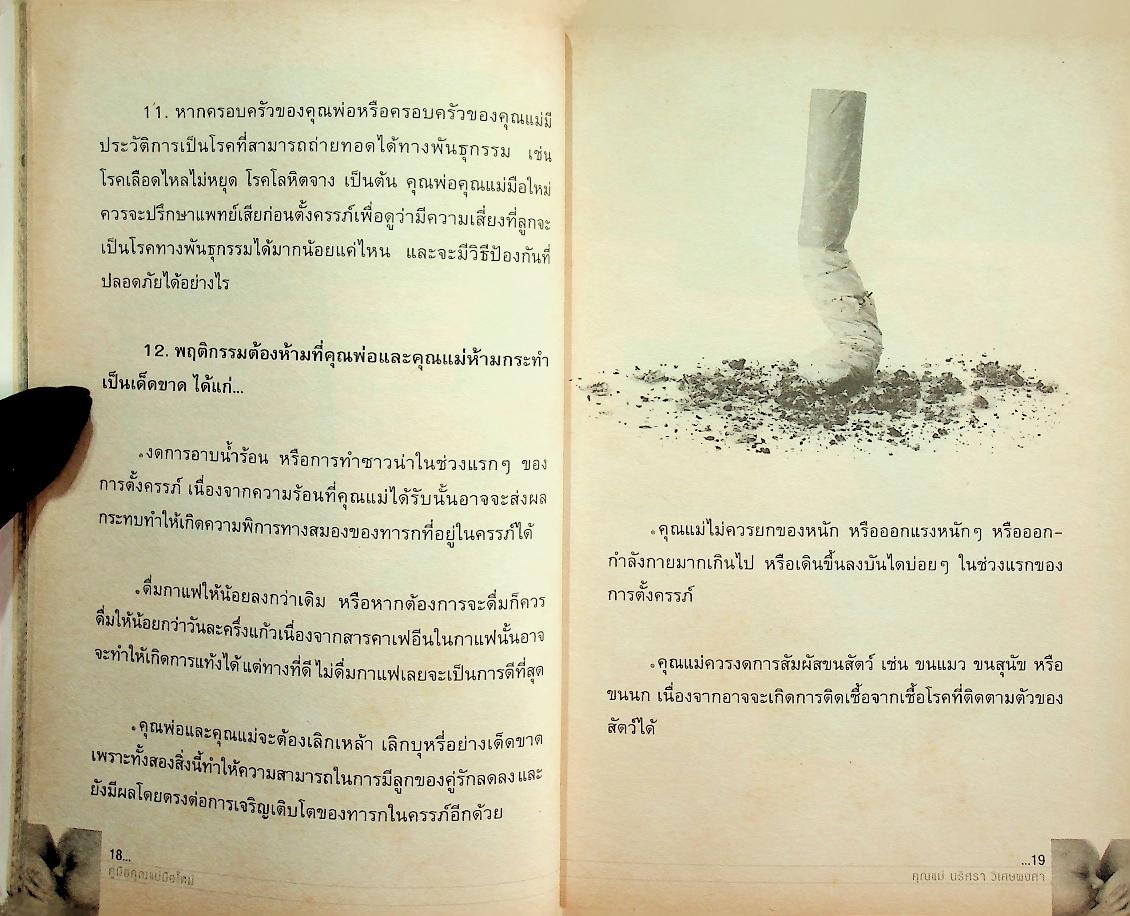 11. หากครอบครัวของคุณพ่อหรือครอบครัวของคุณแม่มี
ประวัติการเป็นโรคที่สามารถถ่ายทอดได้ทางพันธุกรรม เช่น
โรคเลือดไหลไม่หยุด โรคโลหิตจาง เป็นต้น คุณพ่อคุณแม่มือใหม่
ควรจะปรึกษาแพทย์เสียก่อนตั้งครรภ์เพื่อดูว่ามีความเสี่ยงที่ลูกจะ
เป็นโรคทางพันธุกรรมได้มากน้อยแค่ไหน และจะมีวิธีป้องกันที่
ปลอดภัยได้อย่างไร
12. พฤติกรรมต้องห้ามที่คุณพ่อและคุณแม่ห้ามกระทำ
เป็นเด็ดขาด ได้แก่...
•งดการอาบน้ำร้อน หรือการทำซาวน่าในช่วงแรกๆ ของ
การตั้งครรภ์ เนื่องจากความร้อนที่คุณแม่ได้รับนั้นอาจจะส่งผล
กระทบทำให้เกิดความพิการทางสมองของทารกที่อยู่ในครรภ์ได้
•ดื่มกาแฟให้น้อยลงกว่าเดิม หรือหากต้องการจะดื่มก็ควร
ดื่มให้น้อยกว่าวันละครึ่งแก้วเนื่องจากสารคาเฟอีนในกาแฟนั้นอาจ
จะทำให้เกิดการแท้งได้ แต่ทางที่ดี ไม่ดื่มกาแฟเลยจะเป็นการดีที่สุด
•คุณพ่อและคุณแม่จะต้องเลิกเหล้า เลิกบุหรี่อย่างเด็ดขาด
เพราะทั้งสองสิ่งนี้ทำให้ความสามารถในการมีลูกของคู่รักลดลง และ
ยังมีผลโดยตรงต่อการเจริญเติบโตของทารกในครรภ์อีกด้วย
18...
คู่มือคุณแม่มือใหม่
•คุณแม่ไม่ควรยกของหนัก หรือออกแรงหนักๆ หรือออก-
กำลังกายมากเกินไป หรือเดินขึ้นลงบันไดบ่อยๆ ในช่วงแรกของ
การตั้งครรภ์
•คุณแม่ควรงดการสัมผัสขนสัตว์ เช่น ขนแมว ขนสุนัข หรือ
ขนนก เนื่องจากอาจจะเกิดการติดเชื้อจากเชื้อโรคที่ติดตามตัวของ
สัตว์ได้
...19
คุณแม่ นริศรา วิเศษพงศา